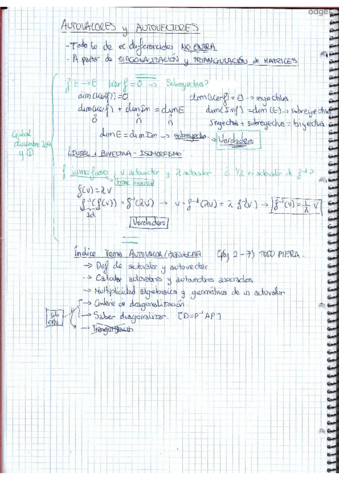 AUTOVALORES y AUTOVECTORES
- Todo lo de ec diferenciales NO ENTRA
- A partir de DIAGONALIZACIÓN y TRIANGULACIÓN de MATRICES
f: E → E Ker(f) = 0 → Sobreyectiva?
dim(Ker f) = 0 dim(Ker f) = 0 → inyectiva
dim(Ker f) + dim Im = dim E dim(Im f) = dim(E) → sobreyectiva
0 n n Inyectiva + sobreyectiva = biyectiva
dim E = dim Im → sobreyectiva Verdadera
LINEAL + BIYECTIVA = ISOMORFISMO
v autovector y λ autovalor ¿ 1/λ es autovalor de f⁻¹?
f(v) = λv
f⁻¹(f(v)) = f⁻¹(λv) → v = f⁻¹(λv) = λ f⁻¹(v) → f⁻¹(v) = 1/λ v
Id
Verdadera
Índice Tema (pág 2-7) TODO
→ Def de autovalor y autovector
→ Calcular autovalores y autovectores asociados
→ Multiplicidad algebraica y geométrica de un autovalor
→ Criterio de diagonalización
→ Saber diagonalizar. [D = P⁻¹AP]